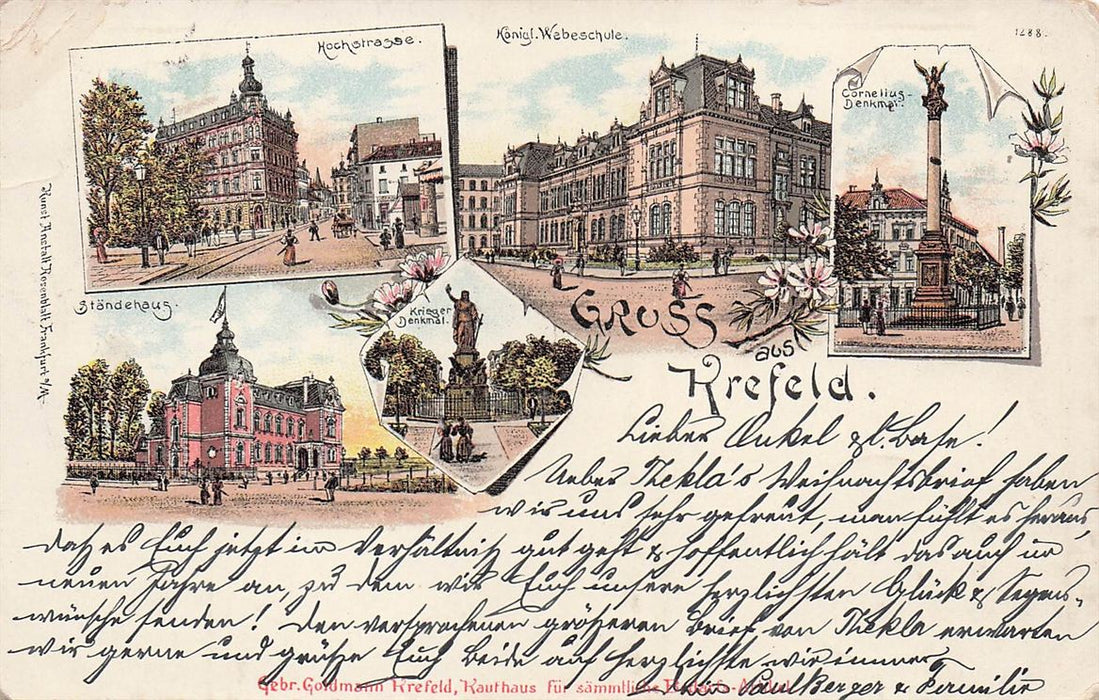 Hochstrasse.
Königl. Webeschule.
1288.
Cornelius-
Denkmal.
Ständehaus.
Krieger
Denkmal.
GRUSS
aus
Krefeld.
Kunst Anstalt Rosenblatt, Frankfurt a/M.
Lieber Onkel & l. Base!
Ueber Thekla's Weihnachtsbrief haben
wir uns sehr gefreut, man fühlt es heraus,
daß es Euch jetzt im Verhältniß gut geht & hoffentlich hält das auch im
neuen Jahre an, zu dem wir Euch unsere herzlichsten Glück & Segens-
wünsche senden! Den versprochenen größeren Brief von Thekla erwarten
wir gerne und grüße Euch beide auf herzlichste wie immer
Gebr. Goldmann Krefeld, Kaufhaus für sämmtliche
Berger & Familie